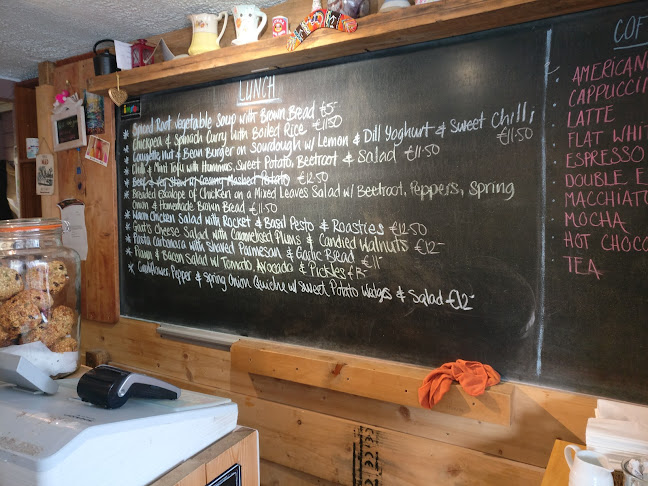 LUNCH
* Spiced Root Vegetable Soup with Brown Bread €5-
* Chickpea & Spinach Curry with Boiled Rice €11.50
* Courgette, Nut & Bean Burger on Sourdough w/ Lemon & Dill Yoghurt & Sweet Chilli €11.50
* Chilli & Mint Tofu with Hummus, Sweet Potato, Beetroot & Salad €11.50
* Beef & Veg Stew w/ Creamy Mashed Potato €12.50
* Breaded Escalope of Chicken on a Mixed Leaves Salad w/ Beetroot, Peppers, Spring
& Homemade Brown Bread €11.50
* Warm Chicken Salad with Rocket & Basil Pesto & Roasties €12.50
* Goats Cheese Salad with Caramelised Plums & Candied Walnuts €12-
* Pasta Carbonara with Shaved Parmesan & Garlic Bread €11-
* & Bacon Salad w/ Tomato, Avocado & Pickles
* Cauliflower, Pepper & Spring Onion Quiche w/ Sweet Potato Wedges & Salad €12-
COF
AMERICAN
CAPPUCCIN
LATTE
FLAT WHIT
ESPRESSO
DOUBLE E
MACCHIATO
MOCHA
HOT CHOCO
TEA